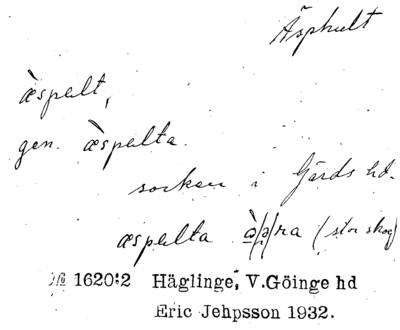 Äsphult
æ̀spalt,
gen. æ̀spalta.
socken i Gärds hd.
æspalta (stor skog)
1620:2 Häglinge, V.Göinge hd
Eric Jehpsson 1932.